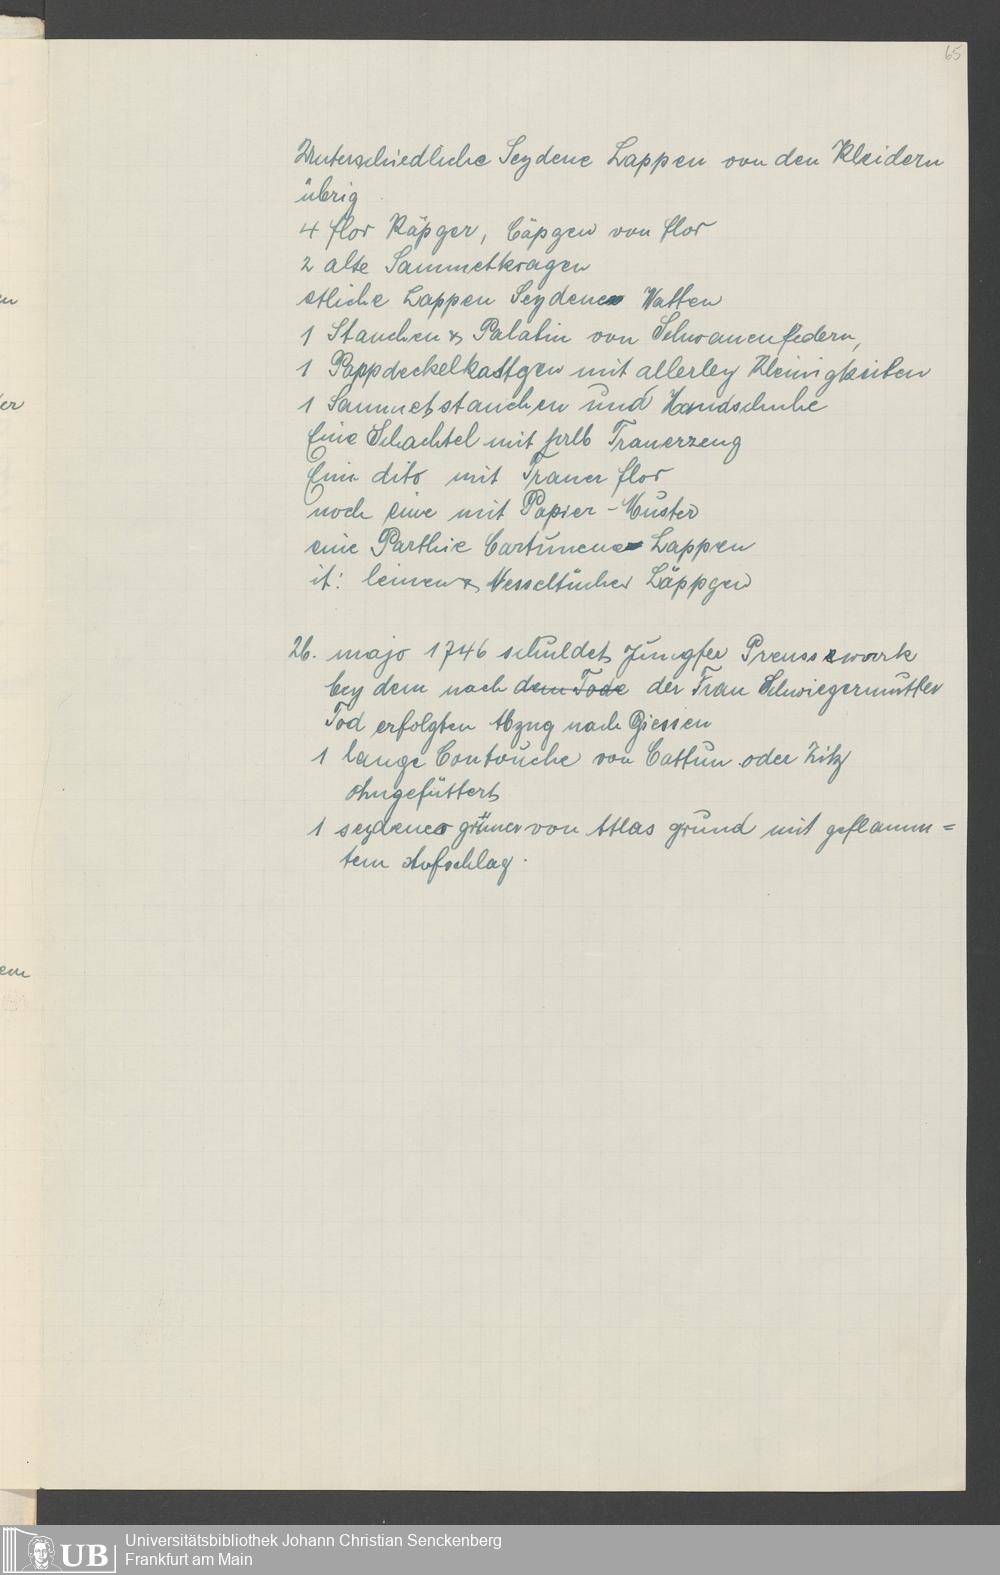 65
Unterschiedliche Seydene Lappen von den Kleidern
übrig
4 flor Käpger, Cäpgen von flor
2 alte Sammetkragen
etliche Lappen Seydene Watten
1 Stauchen & Palatin von Schwanenfedern,
1 Pappdeckelkastgen mit allerley Kleinigkeiten
1 Sammetstauchen und Handschuhe
Eine Schachtel mit Trauerzeug
Ein dito mit Trauer flor
noch eine mit Papier-Muster
eine Parthie Cartunene Lappen
it: leinen & Nesseltücher Läppgen
26. majo 1746 schuldet Jungfer Preusswerk
bey dem nach dem Tode der Frau Schwiegermutter
Tod erfolgten Abzug nach Giessen
1 lange Contouche von Cattun oder Zitz
ohngefüttert
1 seydener grüner von Atlas grund mit geflamm=
tem Aufschlag.
UB
Universitätsbibliothek Johann Christian Senckenberg
Frankfurt am Main